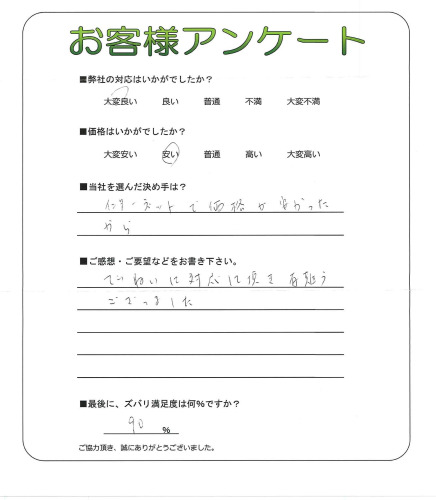 お客様アンケート
■弊社の対応はいかがでしたか？
大変良い 良い 普通 不満 大変不満
■価格はいかがでしたか？
大変安い 安い 普通 高い 大変高い
■当社を選んだ決め手は？
インターネットで価格が安かった
から
■ご感想・ご要望などをお書き下さい。
ていねいに対応して頂き有難う
ございました
■最後に、ズバリ満足度は何%ですか？
90 %
ご協力頂き、誠にありがとうございました。